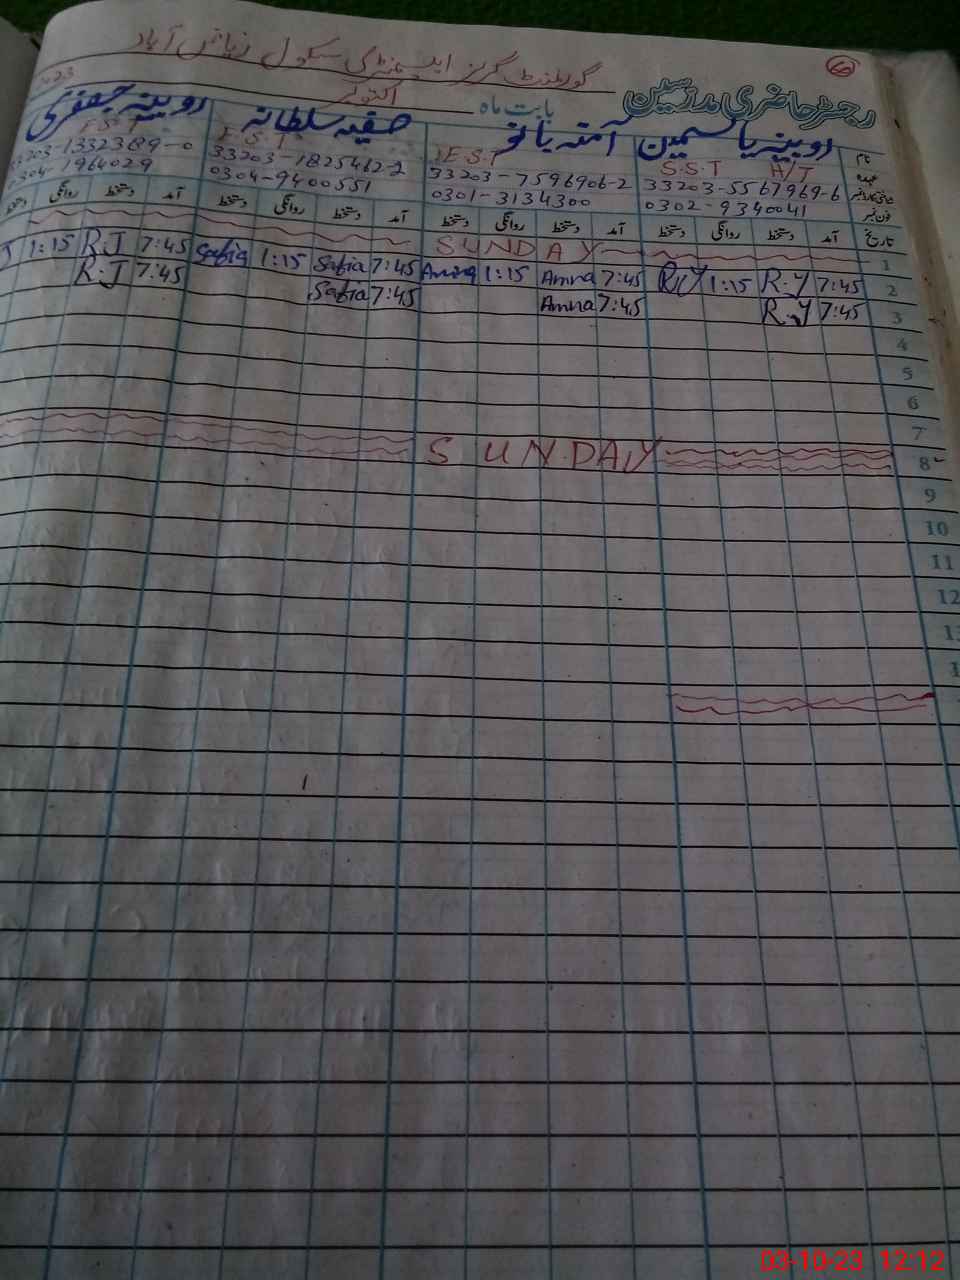 60
گورنمنٹ گرلز ایلیمنٹری سکول ریاض آباد
رجسٹر حاضری مدرسین بابت ماہ اکتوبر 23
نام روبینہ یاسمین آمنہ بانو صفیہ سلطانہ روبینہ جعفری
عہدہ S.S.T H/T E.S.T E.S.T E.S.T
شناختی کارڈ نمبر 33203-5567969-6 33203-7596906-2 33203-1825462-2 33203-1332389-0
فون نمبر 0302-9340041 0301-3134300 0304-9400551 0304-1964029
تاریخ آمد دستخط روانگی دستخط آمد دستخط روانگی دستخط آمد دستخط روانگی دستخط آمد دستخط روانگی دستخط
1 SUNDAY
2 7:45 R.Y 1:15 R.Y 7:45 Amna 1:15 Amna 7:45 Safia 1:15 Safia 7:45 R.J 1:15 J
3 7:45 R.Y 7:45 Amna 7:45 Safia 7:45 R.J
4
5
6
7
8 SUNDAY
9
10
11
12
03-10-23 12:12